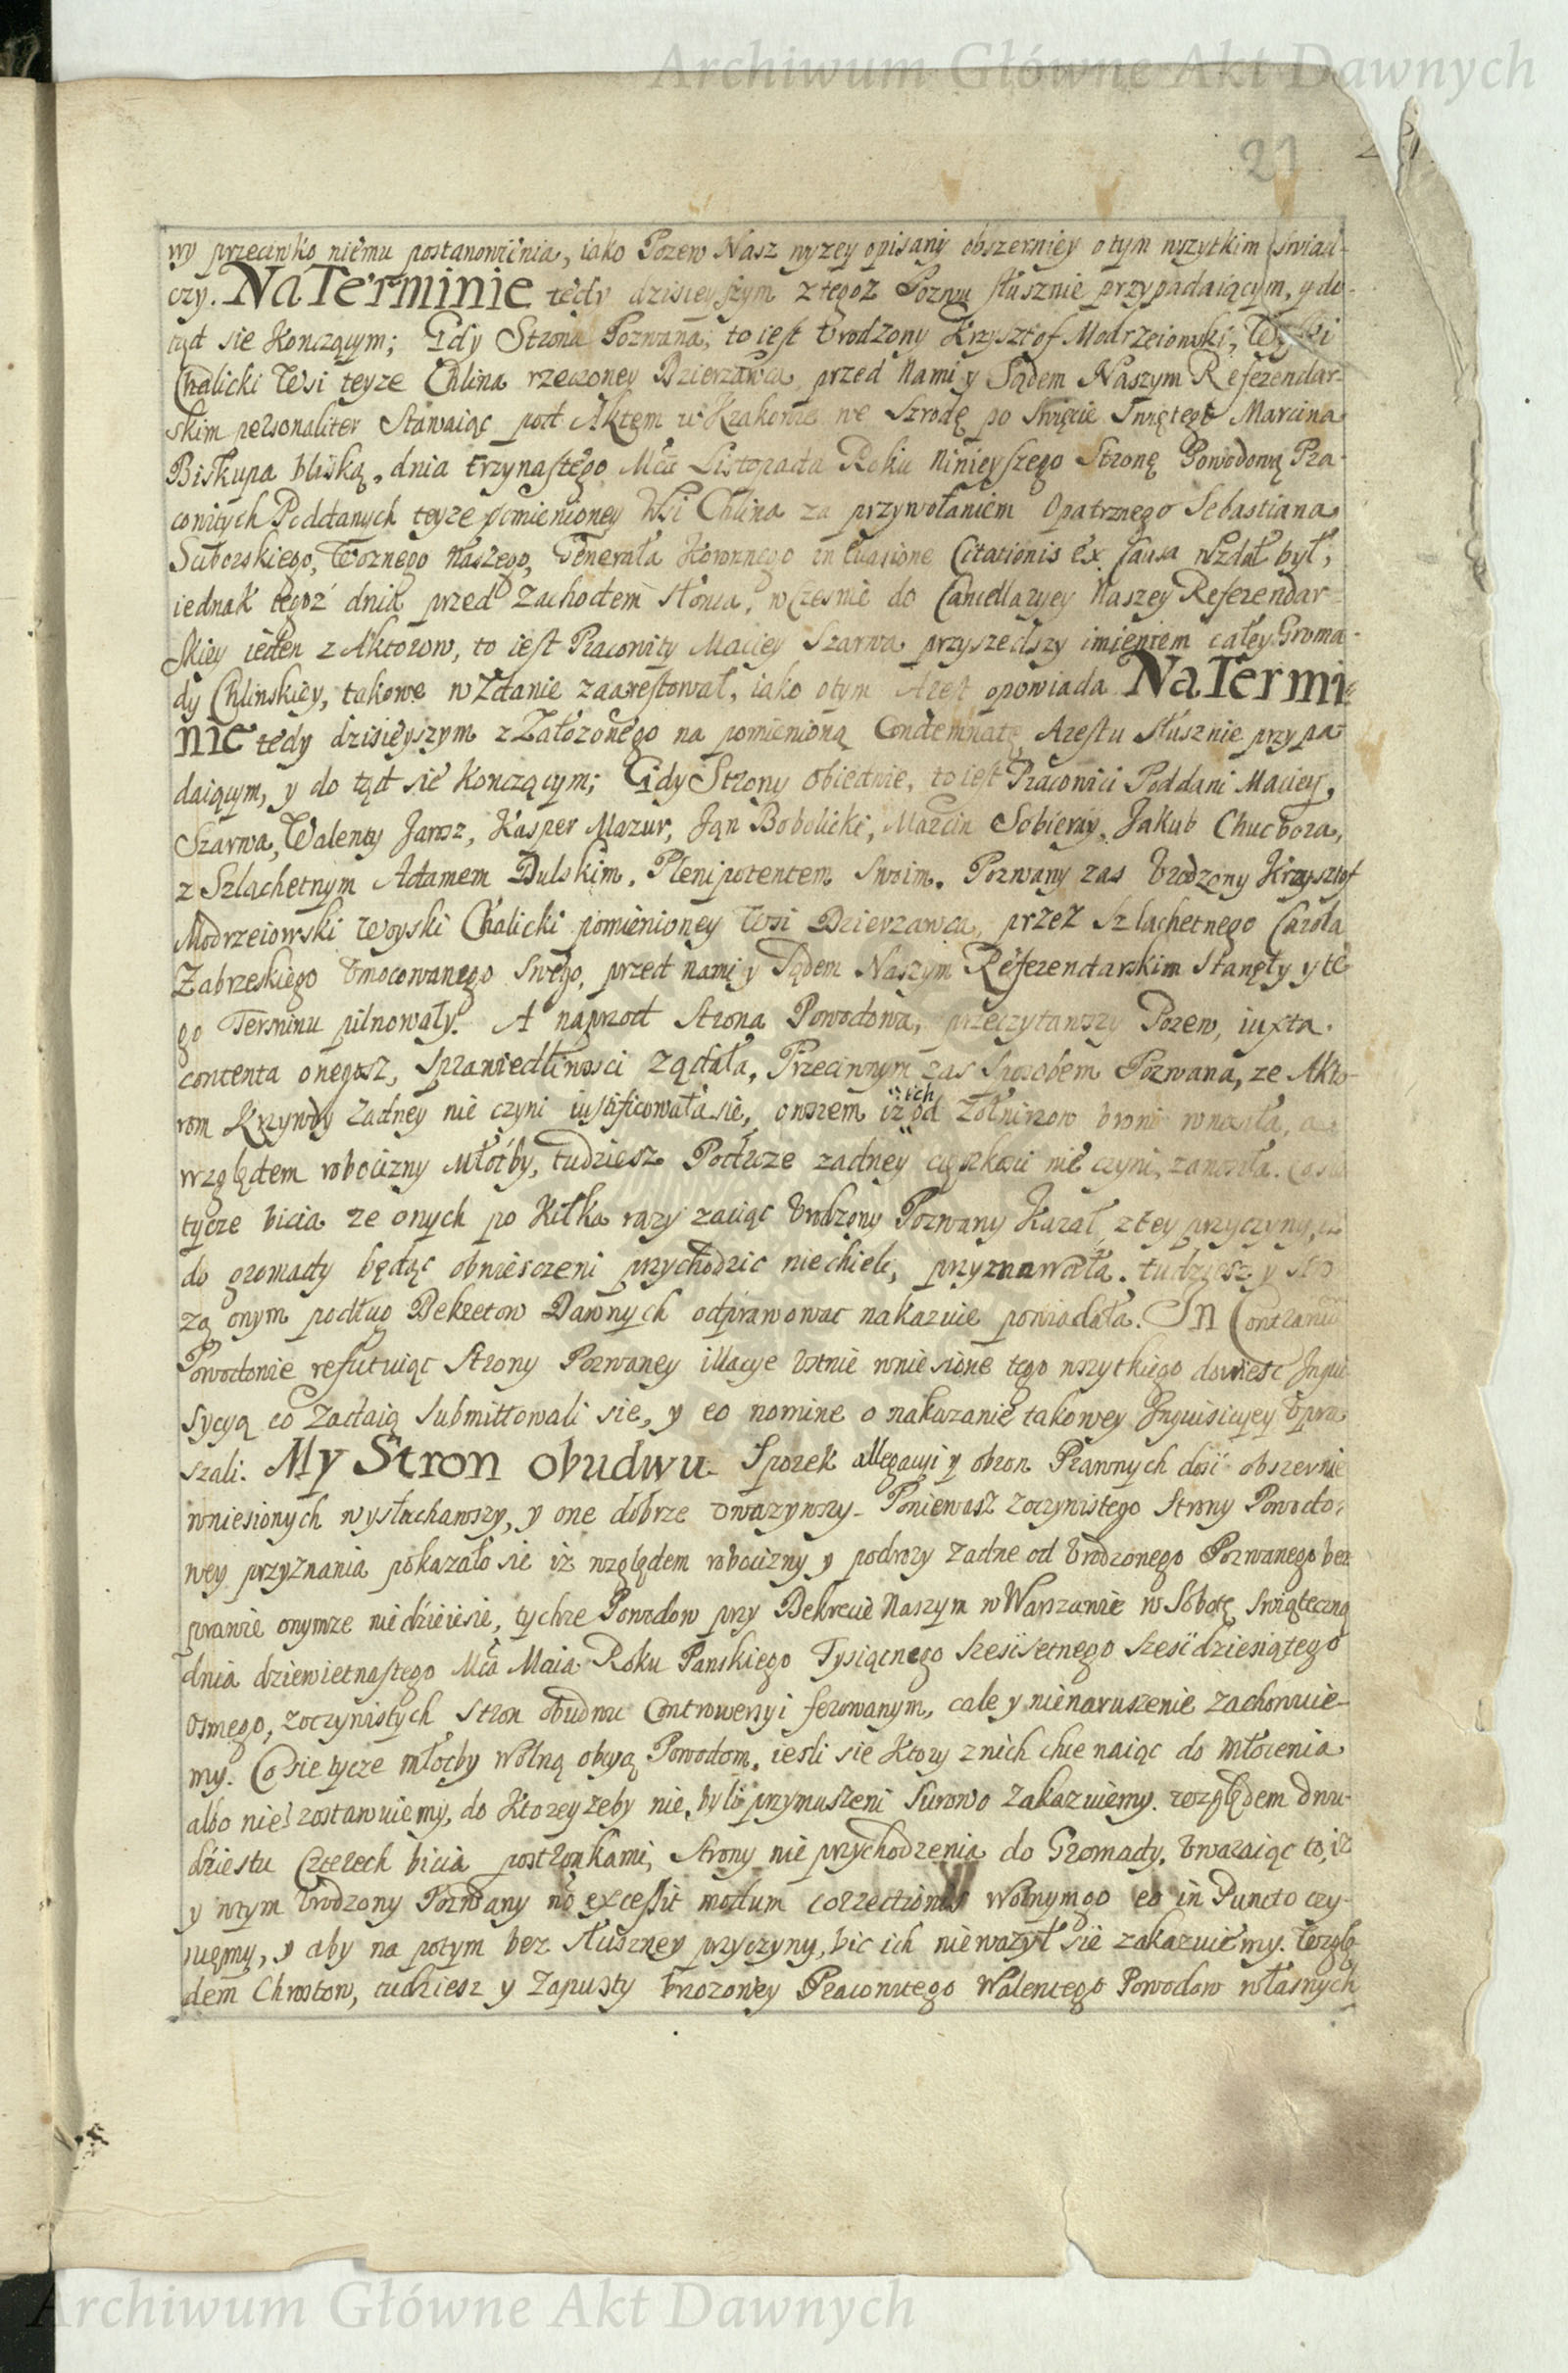 Archiwum Główne Akt Dawnych
21
wy przeciwko niemu postanowienia, iako Pozew Nasz wyzey opisany obszerniey otym wszytkim swiad-
czy. Na Terminie tedy dzisieyszym z tegoz Pozwu słusznie przypadaiącym, y do-
tąd sie Konczącym; Gdy Strona Pozwana, to iest Urodzony Krzysztof Modrzeiowski, Woyski
Chalicki Wsi teyze Chlina rzeczoney Dzierzawca przed Nami y Sądem Naszym Referendar-
skim personaliter Stawaiąc pod Aktem w Krakowie we Szrodę po Swięcie Swiętego Marcina
Biskupa bliską, dnia trzynastego Mca Listopada Roku Ninieyszego Stronę Powodową Pra-
cowitych Poddanych teyze pomienioney Wsi Chlina za przywołaniem Opatrznego Sebastiana
Suborskiego, Woznego Naszego, Generała Koronnego in evasione Citationis ex causa wzdał był,
iednak tegoz dnia przed Zachodem Słonca, wczesnie do Cancellaryey Naszey Referendar-
skiey ieden z Aktorow, to iest Pracowity Maciey Szarwa przyszedszy imieniem całey Groma-
dy Chlinskiey, takowe wzdanie zaarestował, iako otym Arest opowiada. Na Termi-
nie tedy dzisieyszym z Załozonego na pomienioną Condemnatę Arestu słusznie przypa-
daiącym, y do tąd sie Konczącym; Gdy Strony Obiedwie, to iest Pracowici Poddani Maciey,
Szarwa, Walenty Jarosz, Kasper Mazur, Jan Bobolicki, Marcin Sobieray, Jakub Chucbora,
z Szlachetnym Adamem Dulskim, Plenipotentem Swoim. Pozwany zas Urodzony Krzysztof
Modrzeiowski Woyski Chalicki pomienioney Wsi Dzierzawca, przez Szlachetnego Carola
Zabrzeskiego Umocowanego Swego, przed nami y Sądem Naszym Referendarskim Stanęły y te-
go Terminu pilnowały. A naprzod Strona Powodowa, przeczytawszy Pozew, iuxta
contenta onegosz, Sprawiedliwosci ządała, Przeciwnym zas Sposobem Pozwana, ze Akto-
rom Krzywdy Zadney nie czyni iustificowała sie, owszem iz ich od Zołnirzow broni wnosiła, a
względem robocizny Młocby, tudziesz Podroze zadney cięszkosci nie czyni, zanosiła. Co sie
tycze bicia ze onych po Kilka razy zaciąc Urodzony Pozwany Kazał, z tey przyczyny, iz
do gromady będąc obwiesczeni przychodzic niechieli, przyznawała. tudziesz y stro
zą onym podług Dekretow Dawnych odprawowac nakazuie powiadała. In Contrarium
Powodowie refutuiąc Strony Pozwaney illacye Ustnie wniesione tego wszytkiego dowiesc Inqui
sycyą co Zadaią Submittowali sie, y eo nomine o nakazanie takowey Inquisicyey Upra
szali. My Stron obudwu Sporek allegacyi y obron Prawnych dosi obszernie
wniesionych wysłuchawszy, y one dobrze uwazywszy. Poniewasz zoczywistego Strony Powodo-
wey przyznania pokazało sie iz względem robocizny y podrozy zadne od Urodzonego Pozwanego bez
prawie onymze niedzieiesie, tychze Powodow przy Dekrecie Naszym w Warszawie w Sobotę Swiąteczną
dnia dziewietnastego Mca Maia Roku Panskiego Tysiącnego Szesisetnego Szesidziesiątego
Osmego, zoczywistych stron obudwu Controwersyi ferowanym, cale y nienaruszenie zachowuie-
my. Co sie tycze młocby wolną obcyą Powodom, iesli sie Ktory z nich chce naiąc do Młocenia
albo nie zostawuiemy, do Ktorey zeby nie byli przymuszeni Surowo Zakazuiemy. względem dwu-
dziestu Czterech bicia postronkami, Strony nie przychodzenia do Gromady, Uwazaiąc to, iz
y wtym Urodzony Pozwany no excessit modum correctionis Wolnym go eo in Puncto czy-
niemy, y aby na potym bez słuszney przyczyny, bic ich nie wazył sie zakazuiemy. Wzglę-
dem Chrostow, tudziesz y Zapusty Urozoney Pracowitego Walentego Powodow własnych
Archiwum Główne Akt Dawnych